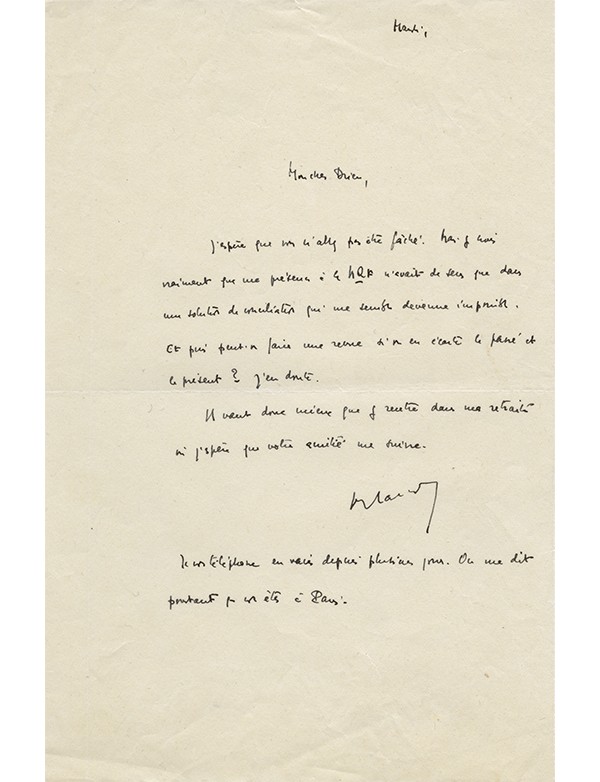 Mardi,
Mon cher Drieu,
J'espère que vous n'allez pas être fâché. Mais je crois
vraiment que ma présence à la NRF n'avait de sens que dans
une solution de conciliation qui me semble devenue impossible.
Et puis peut-on faire une revue si on en écarte le passé et
le présent ? J'en doute.
Il vaut donc mieux que je rentre dans ma retraite
où j'espère que votre amitié me suivra.
Arland
Je vous téléphone en vain depuis plusieurs jours. On me dit
pourtant que vous êtes à Paris.